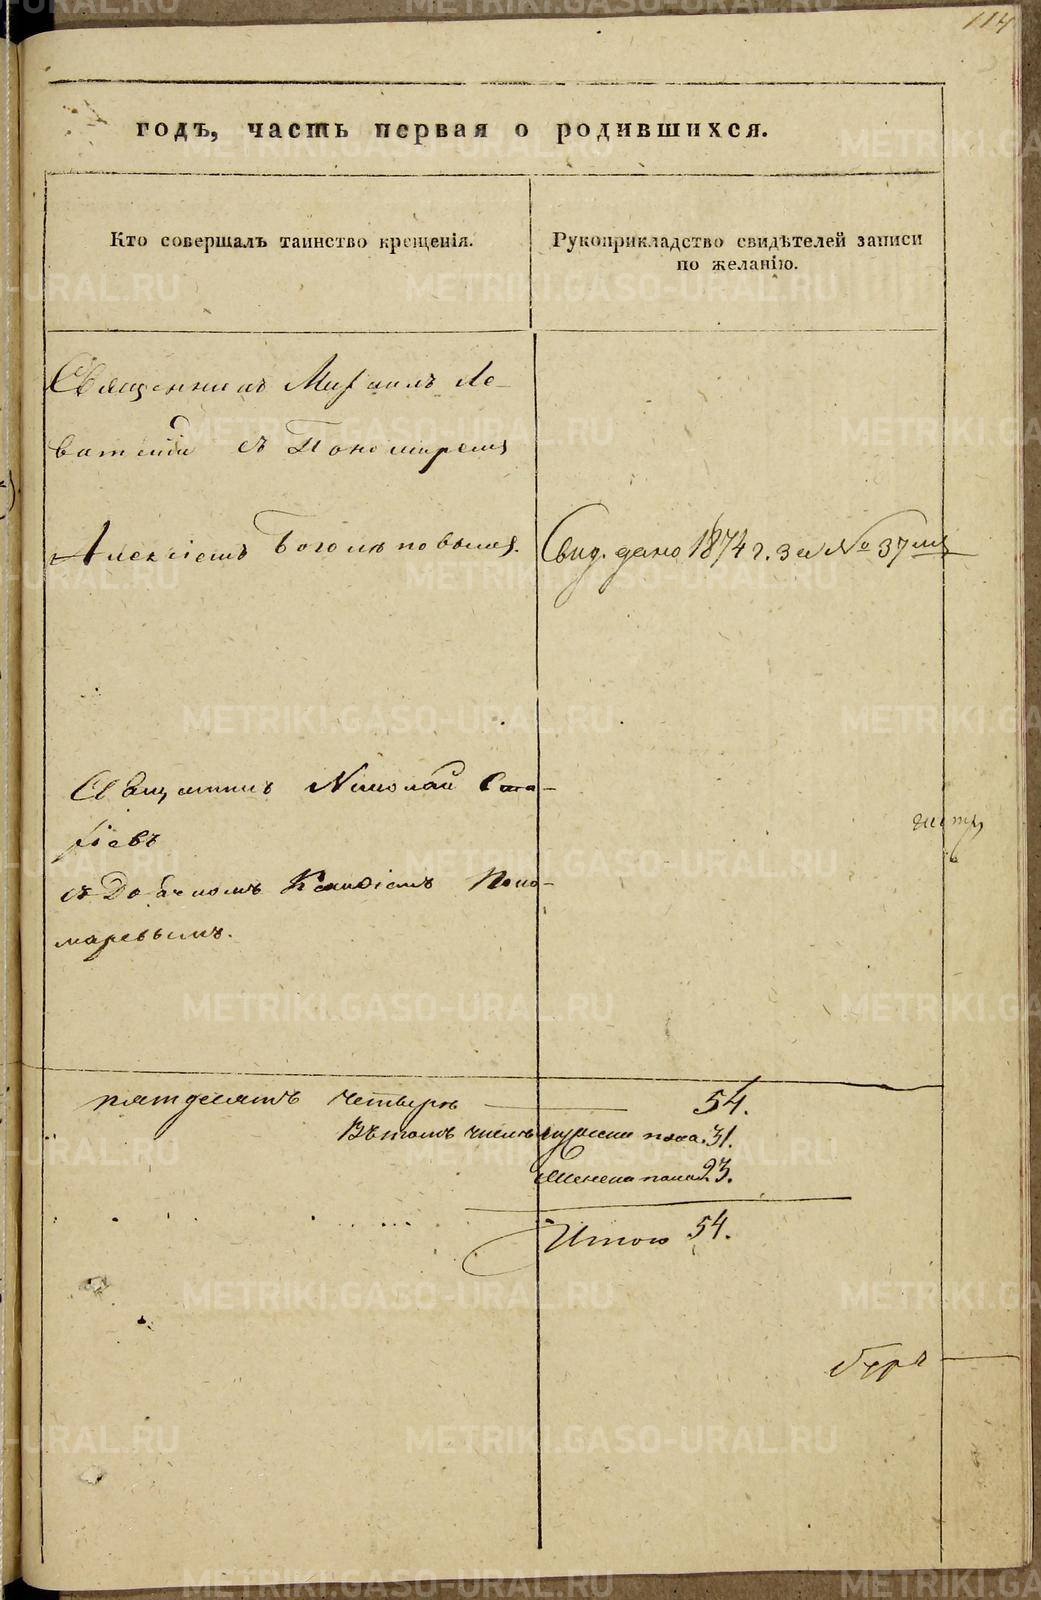 114
годъ, часть первая о родившихся.
Кто совершалъ таинство крещенія.
Рукоприкладство свидѣтелей записи
по желанію.
Священникъ Михаилъ Ле-
ватскій съ Пономаремъ
Алексіемъ Боголѣповымъ.
Свид. дано 1874 г. За № 37мъ
Священникъ Николай
съ Дьячкомъ Поно-
маревымъ.
пятдесятъ четыре 54.
Въ томъ числѣ мужеска пола 31.
Женска пола 23.
Итого 54.
METRIKI.GASO-URAL.RU